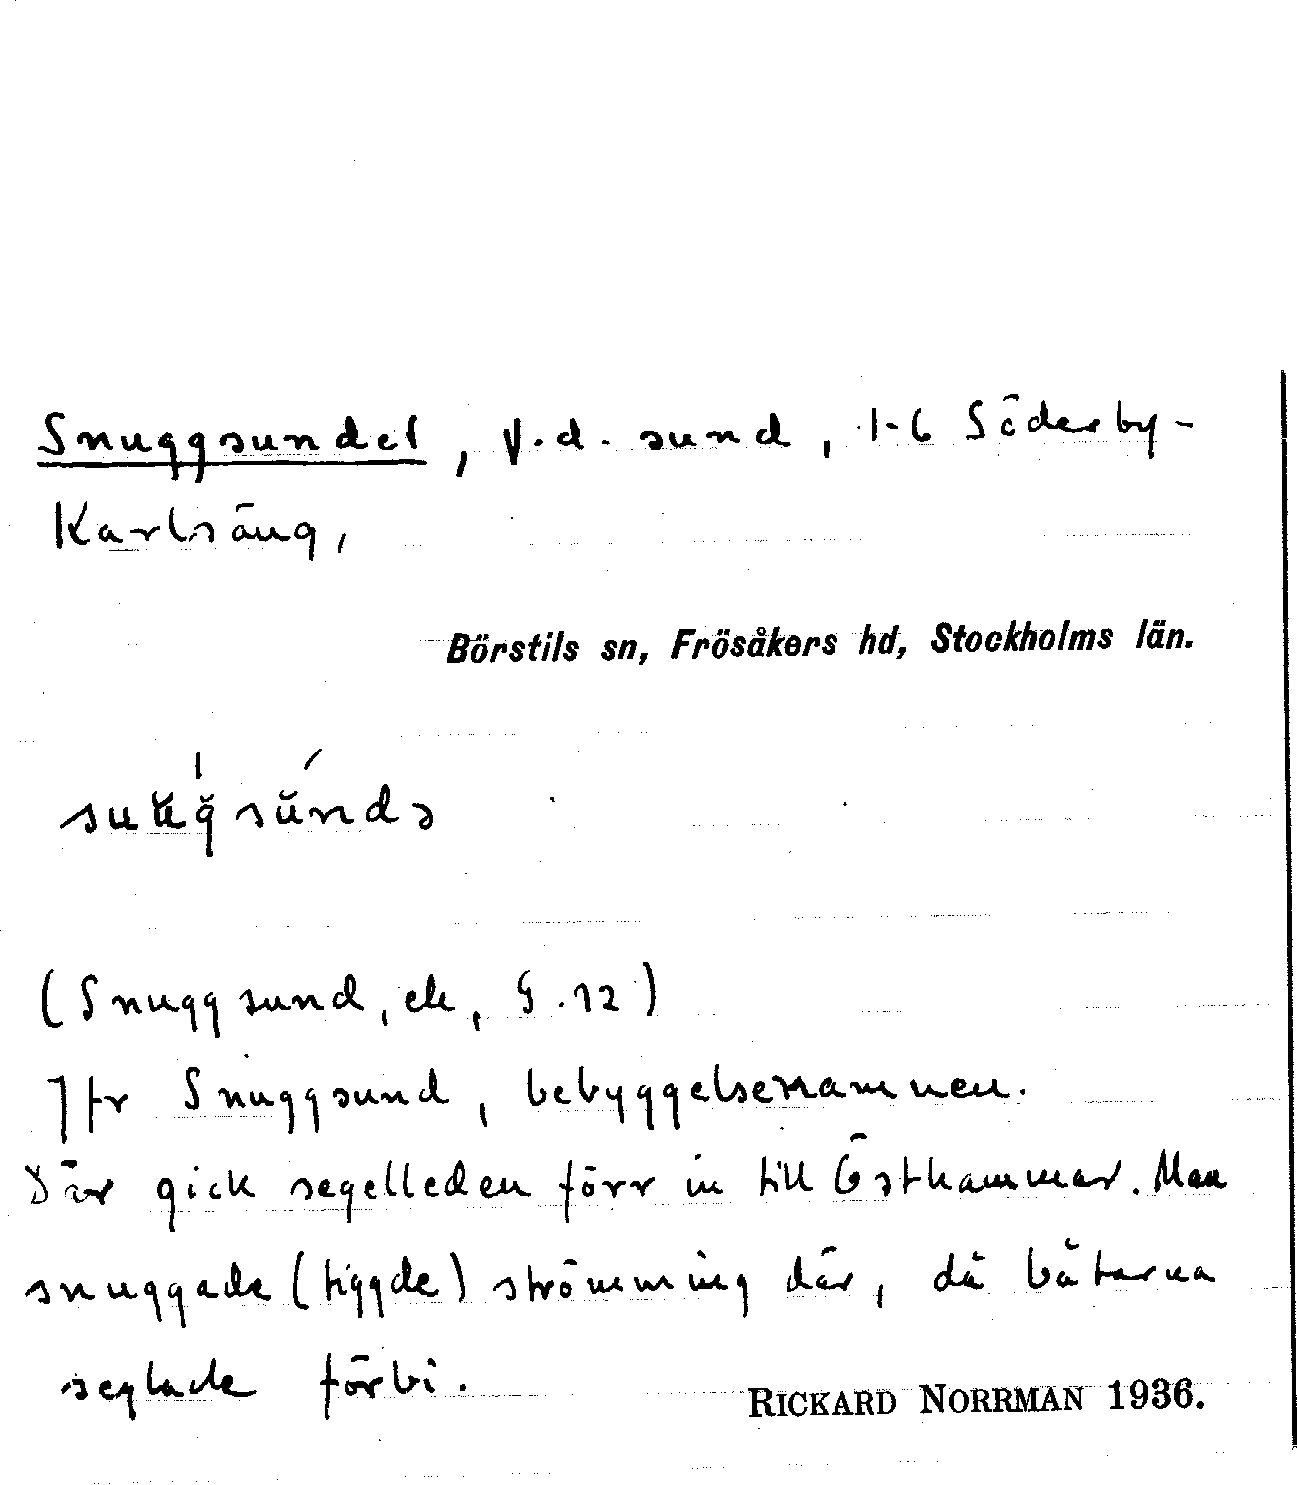 Snuggsundet, v.d. sund, 1-6 Söderby-
Karlsäng,
Börstils sn, Frösåkers hd, Stockholms län.
(Snuggsund, ek, 5.12)
Jfr Snuggsund, bebyggelsenamnen.
Där gick segelleden förr in till Östhammar. Man
snuggade (tiggde) strömming där, då båtarna
seglade förbi.
RICKARD NORRMAN 1936.